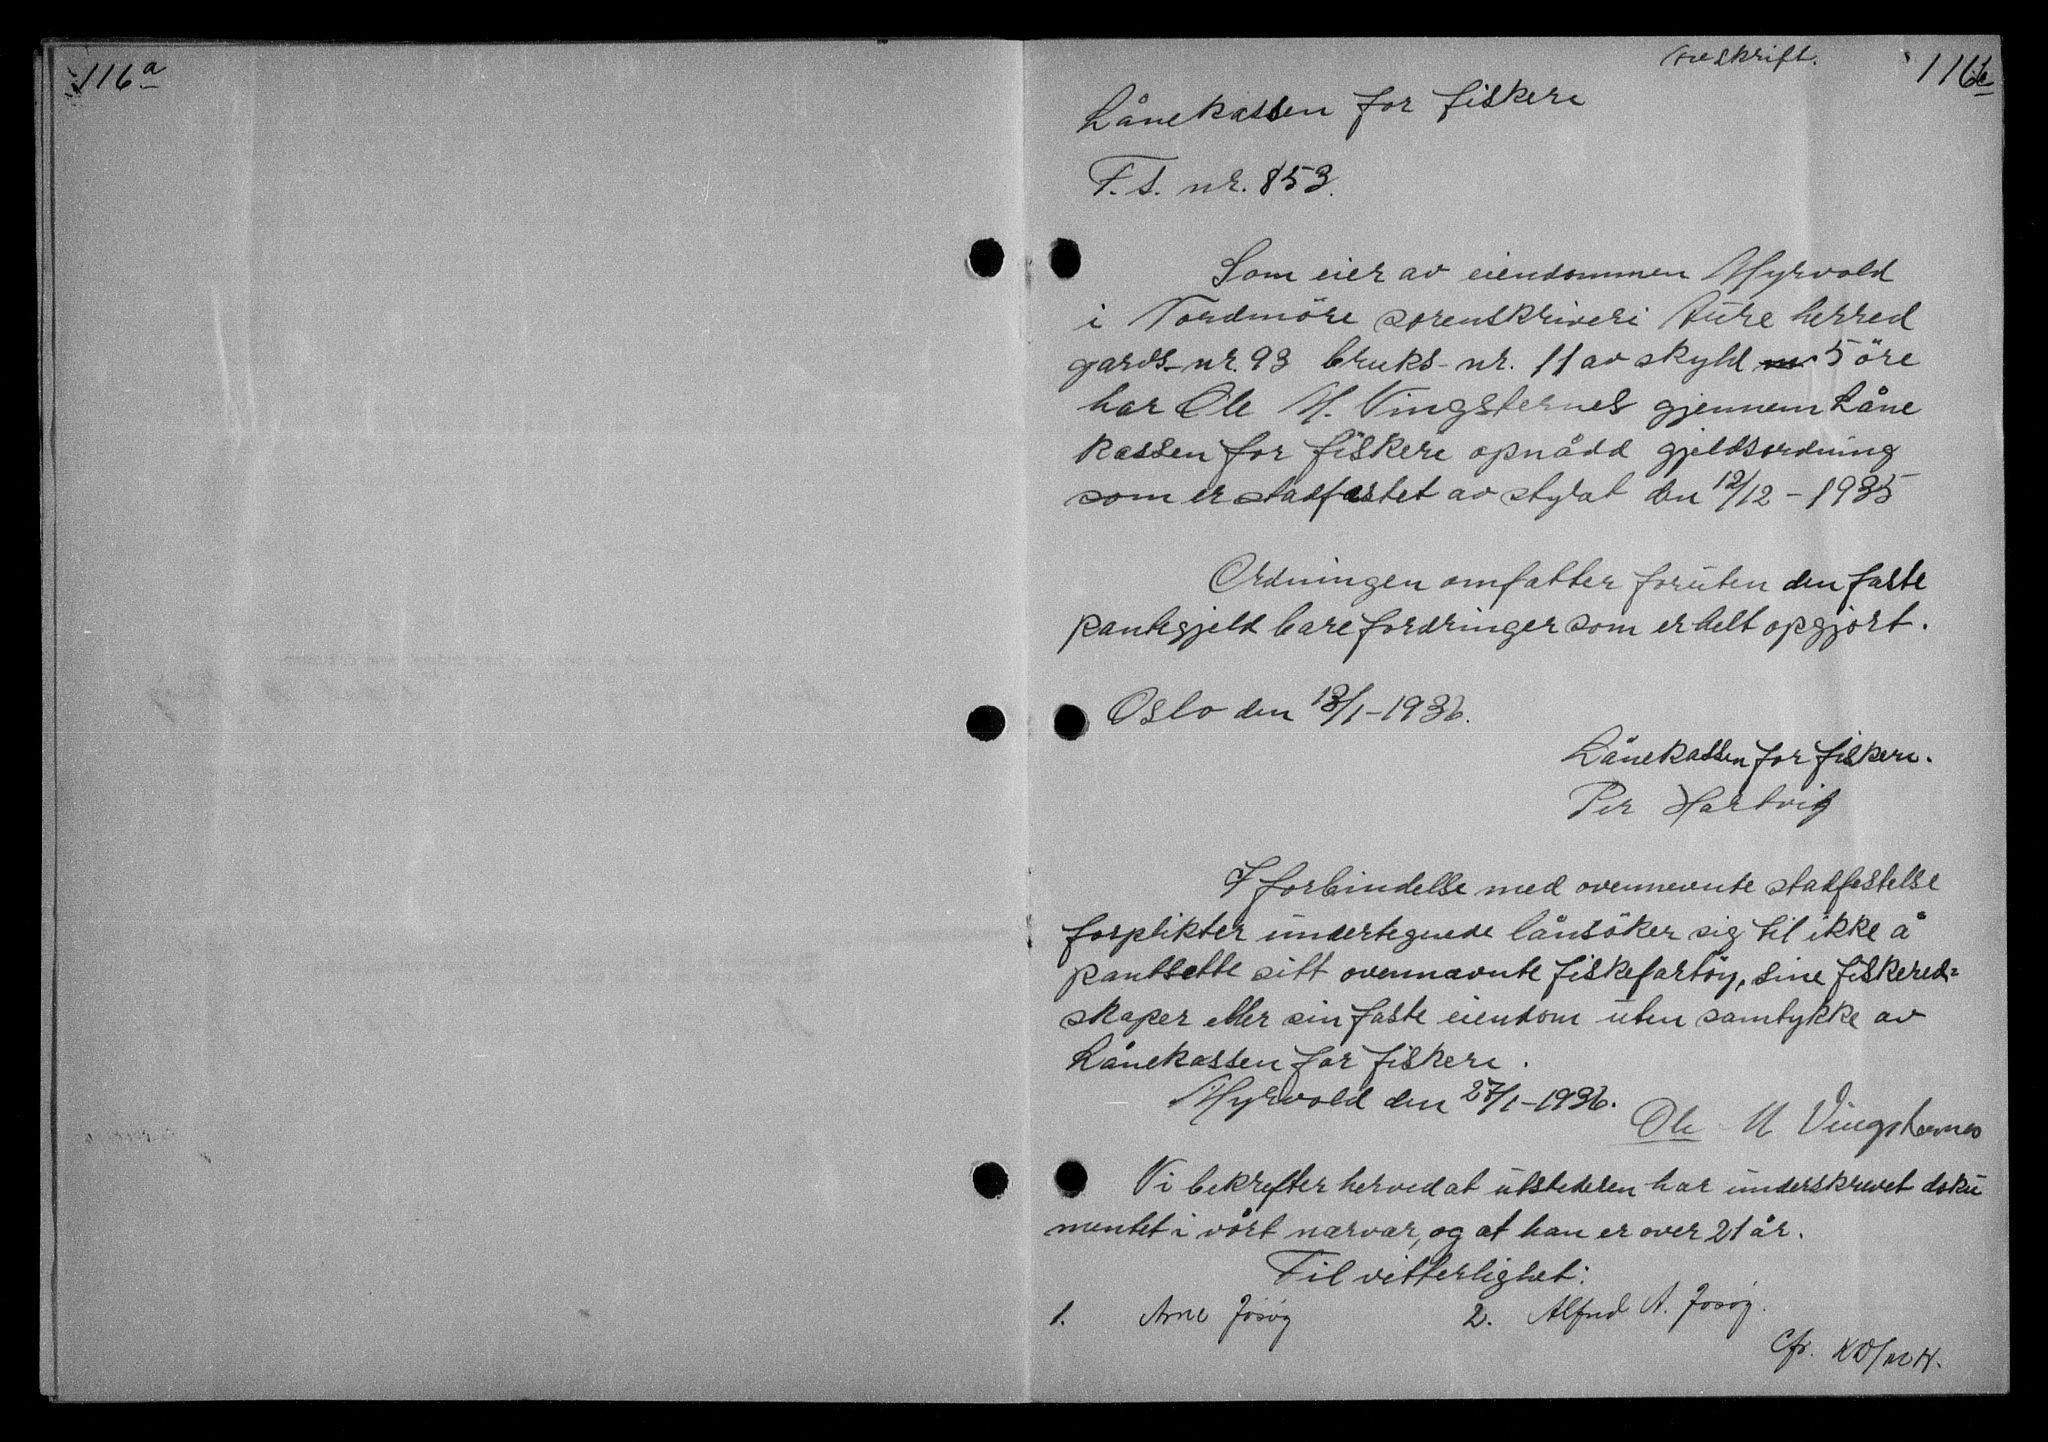 116a
Avskrift.
116b
Lånekassen for fiskere
F.S. nr. 853.
Som eier av eiendommen Myrvold
i Nordmöre sorenskriveri Aure herred
gards-nr. 93 bruks-nr. 11 av skyld 5 öre
har Ole M. Vingsternes gjennem Låne
kassen for fiskere opnådd gjeldsordning
som er stadfestet av styret den 12/12-1935
Ordningen omfatter foruten den faste
pantegjeld bare fordringer som er helt opgjort.
Oslo den 13/1-1936.
Lånekassen for fiskere.
Per Hartvig
I forbindelse med ovennevnte stadfestelse
forplikter undertegnede lånsöker sig til ikke å
pantsette sitt ovennævnte fiskefartöy, sine fiskered=
skaper eller sin faste eiendom uten samtykke av
Lånekassen for fiskere.
Myrvold den 27/1-1936.
Ole M Vingsternes
Vi bekrefter herved at utstederen har underskrevet doku
mentet i vårt nærvær, og at han er over 21 år.
Til vitterlighet:
1. Arne Jösög 2. Alfred A. Josög.
Cfr. KD/MH.